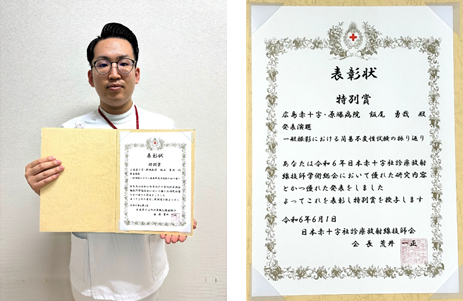 表彰状
特別賞
広島赤十字・原爆病院 飯尾 勇哉 殿
発表演題
一般撮影における茼善不変性試験の振り返り
あなたは令和6年日本赤十字社診療放射
線技師学術総会において優れた研究内容
とかつ優れた発表をしました
よってこれを表彰し特別賞を授与します
令和6年6月1日
日本赤十字社診療放射線技師会
会 長 荒井 一正
表彰状
特別賞